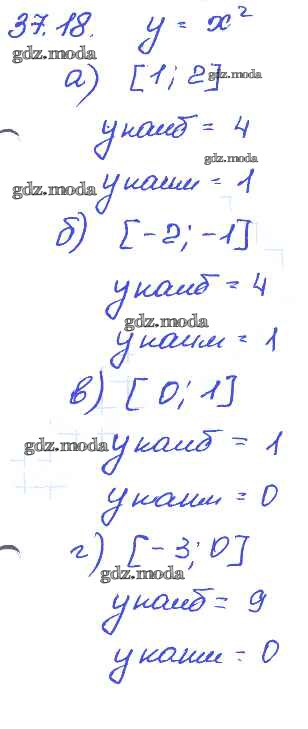 37.18. y = x²
а) [1; 2]
gdz.moda
yнаиб = 4
gdz.moda
gdz.moda yнаим = 1
б) [-2; -1]
yнаиб = 4
gdz.moda
yнаим = 1
в) [0; 1]
gdz.moda yнаиб = 1
yнаим = 0
г) [-3; 0]
gdz.moda
yнаиб = 9
yнаим = 0